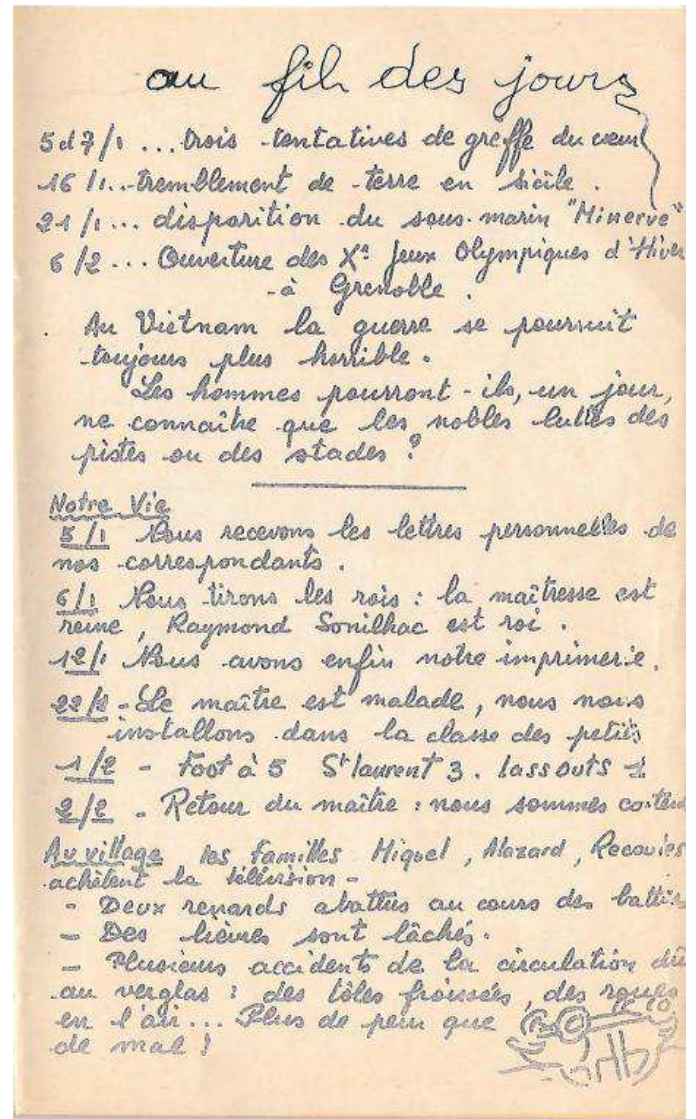 au fil des jours
5 et 7/1 ... trois tentatives de greffe du cœur
16/1... tremblement de terre en Sicile.
21/1... disparition du sous-marin "Minerve"
6/2 ... Ouverture des Xe Jeux Olympiques d'Hiver
à Grenoble.
Au Vietnam la guerre se poursuit
toujours plus horrible.
Les hommes pourront-ils, un jour,
ne connaître que les nobles luttes des
pistes ou des stades ?
Notre Vie
5/1 Nous recevons les lettres personnelles de
nos correspondants.
6/1 Nous tirons les rois : la maîtresse est
reine, Raymond Sonilhac est roi.
12/1 Nous avons enfin notre imprimerie.
22/1 - Le maître est malade, nous nous
installons dans la classe des petits
1/2 - Foot à 5 St laurent 3. lassouts 1
2/2 - Retour du maître : nous sommes
Au village les familles Miquel, Mazard,
achètent la télévision -
- Deux renards abattus au cours des battues
- Des lièvres sont lâchés.
- Plusieurs accidents de la circulation dû
au verglas : des tôles froissées, des roues
en l'air... Plus de peur que
de mal !